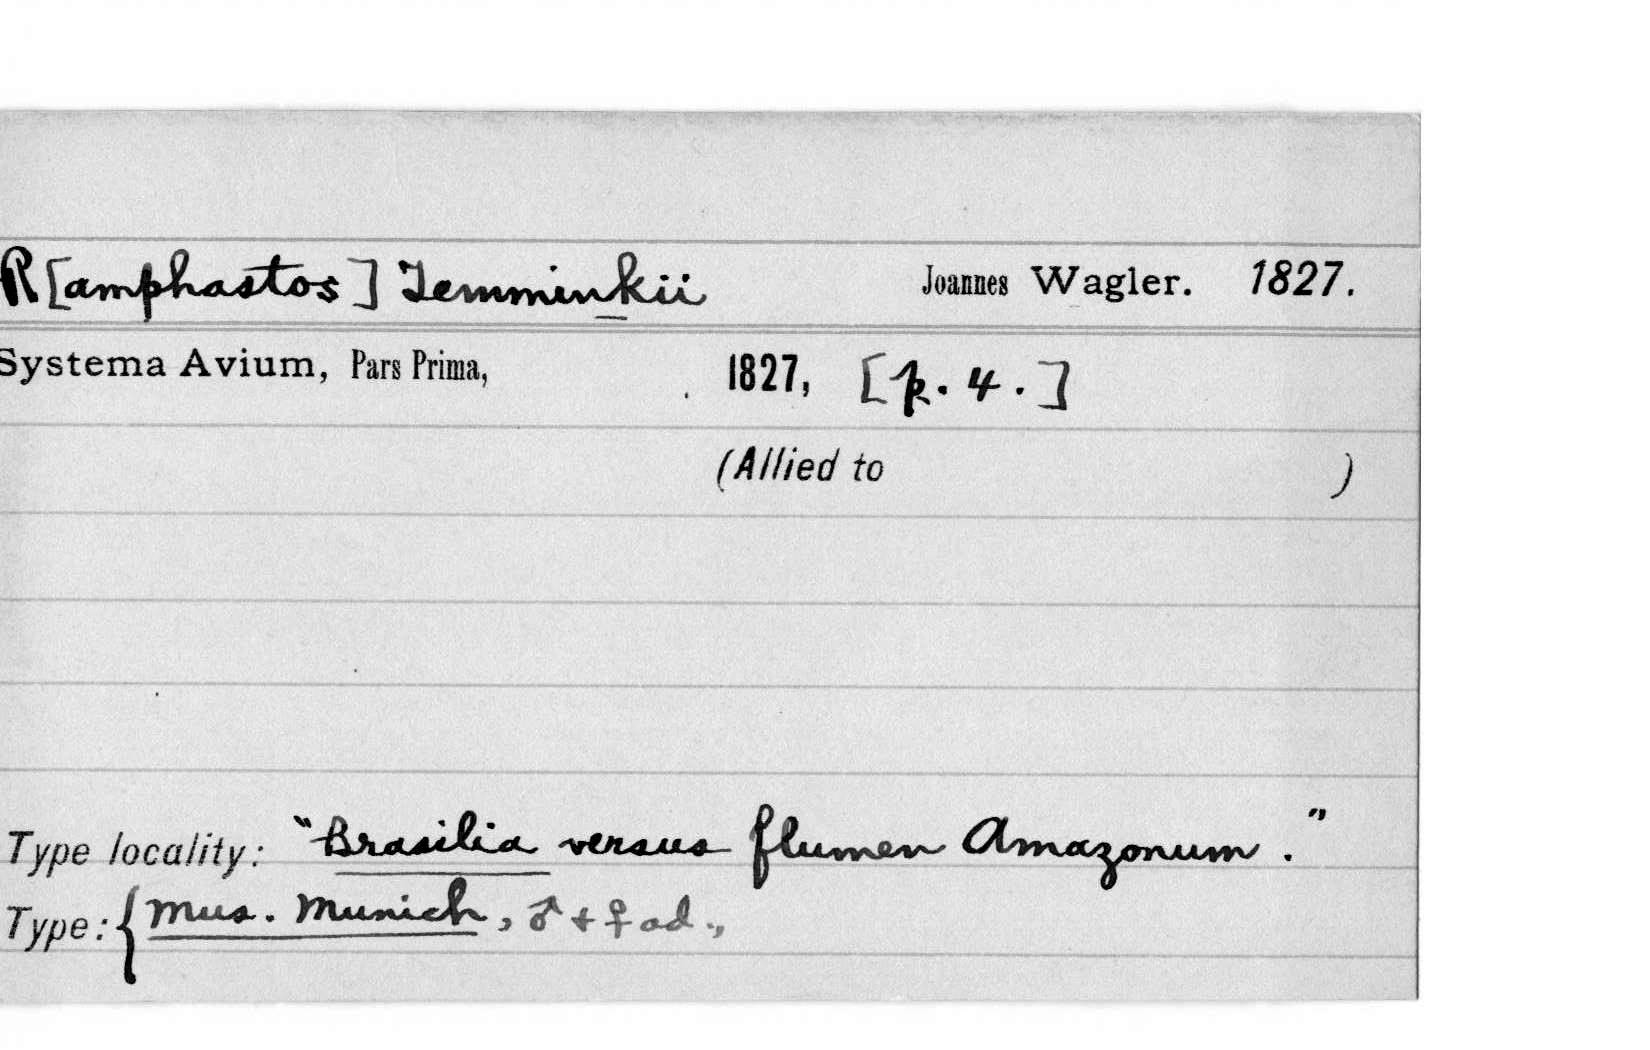 R[amphastos] Temminkii Joannes Wagler. 1827.
Systema Avium, Pars Prima, 1827, [p. 4.]
(Allied to )
Type locality: "Brasilia versus flumen Amazonum."
Type: { Mus. Munich, ♂ + ♀ ad.,